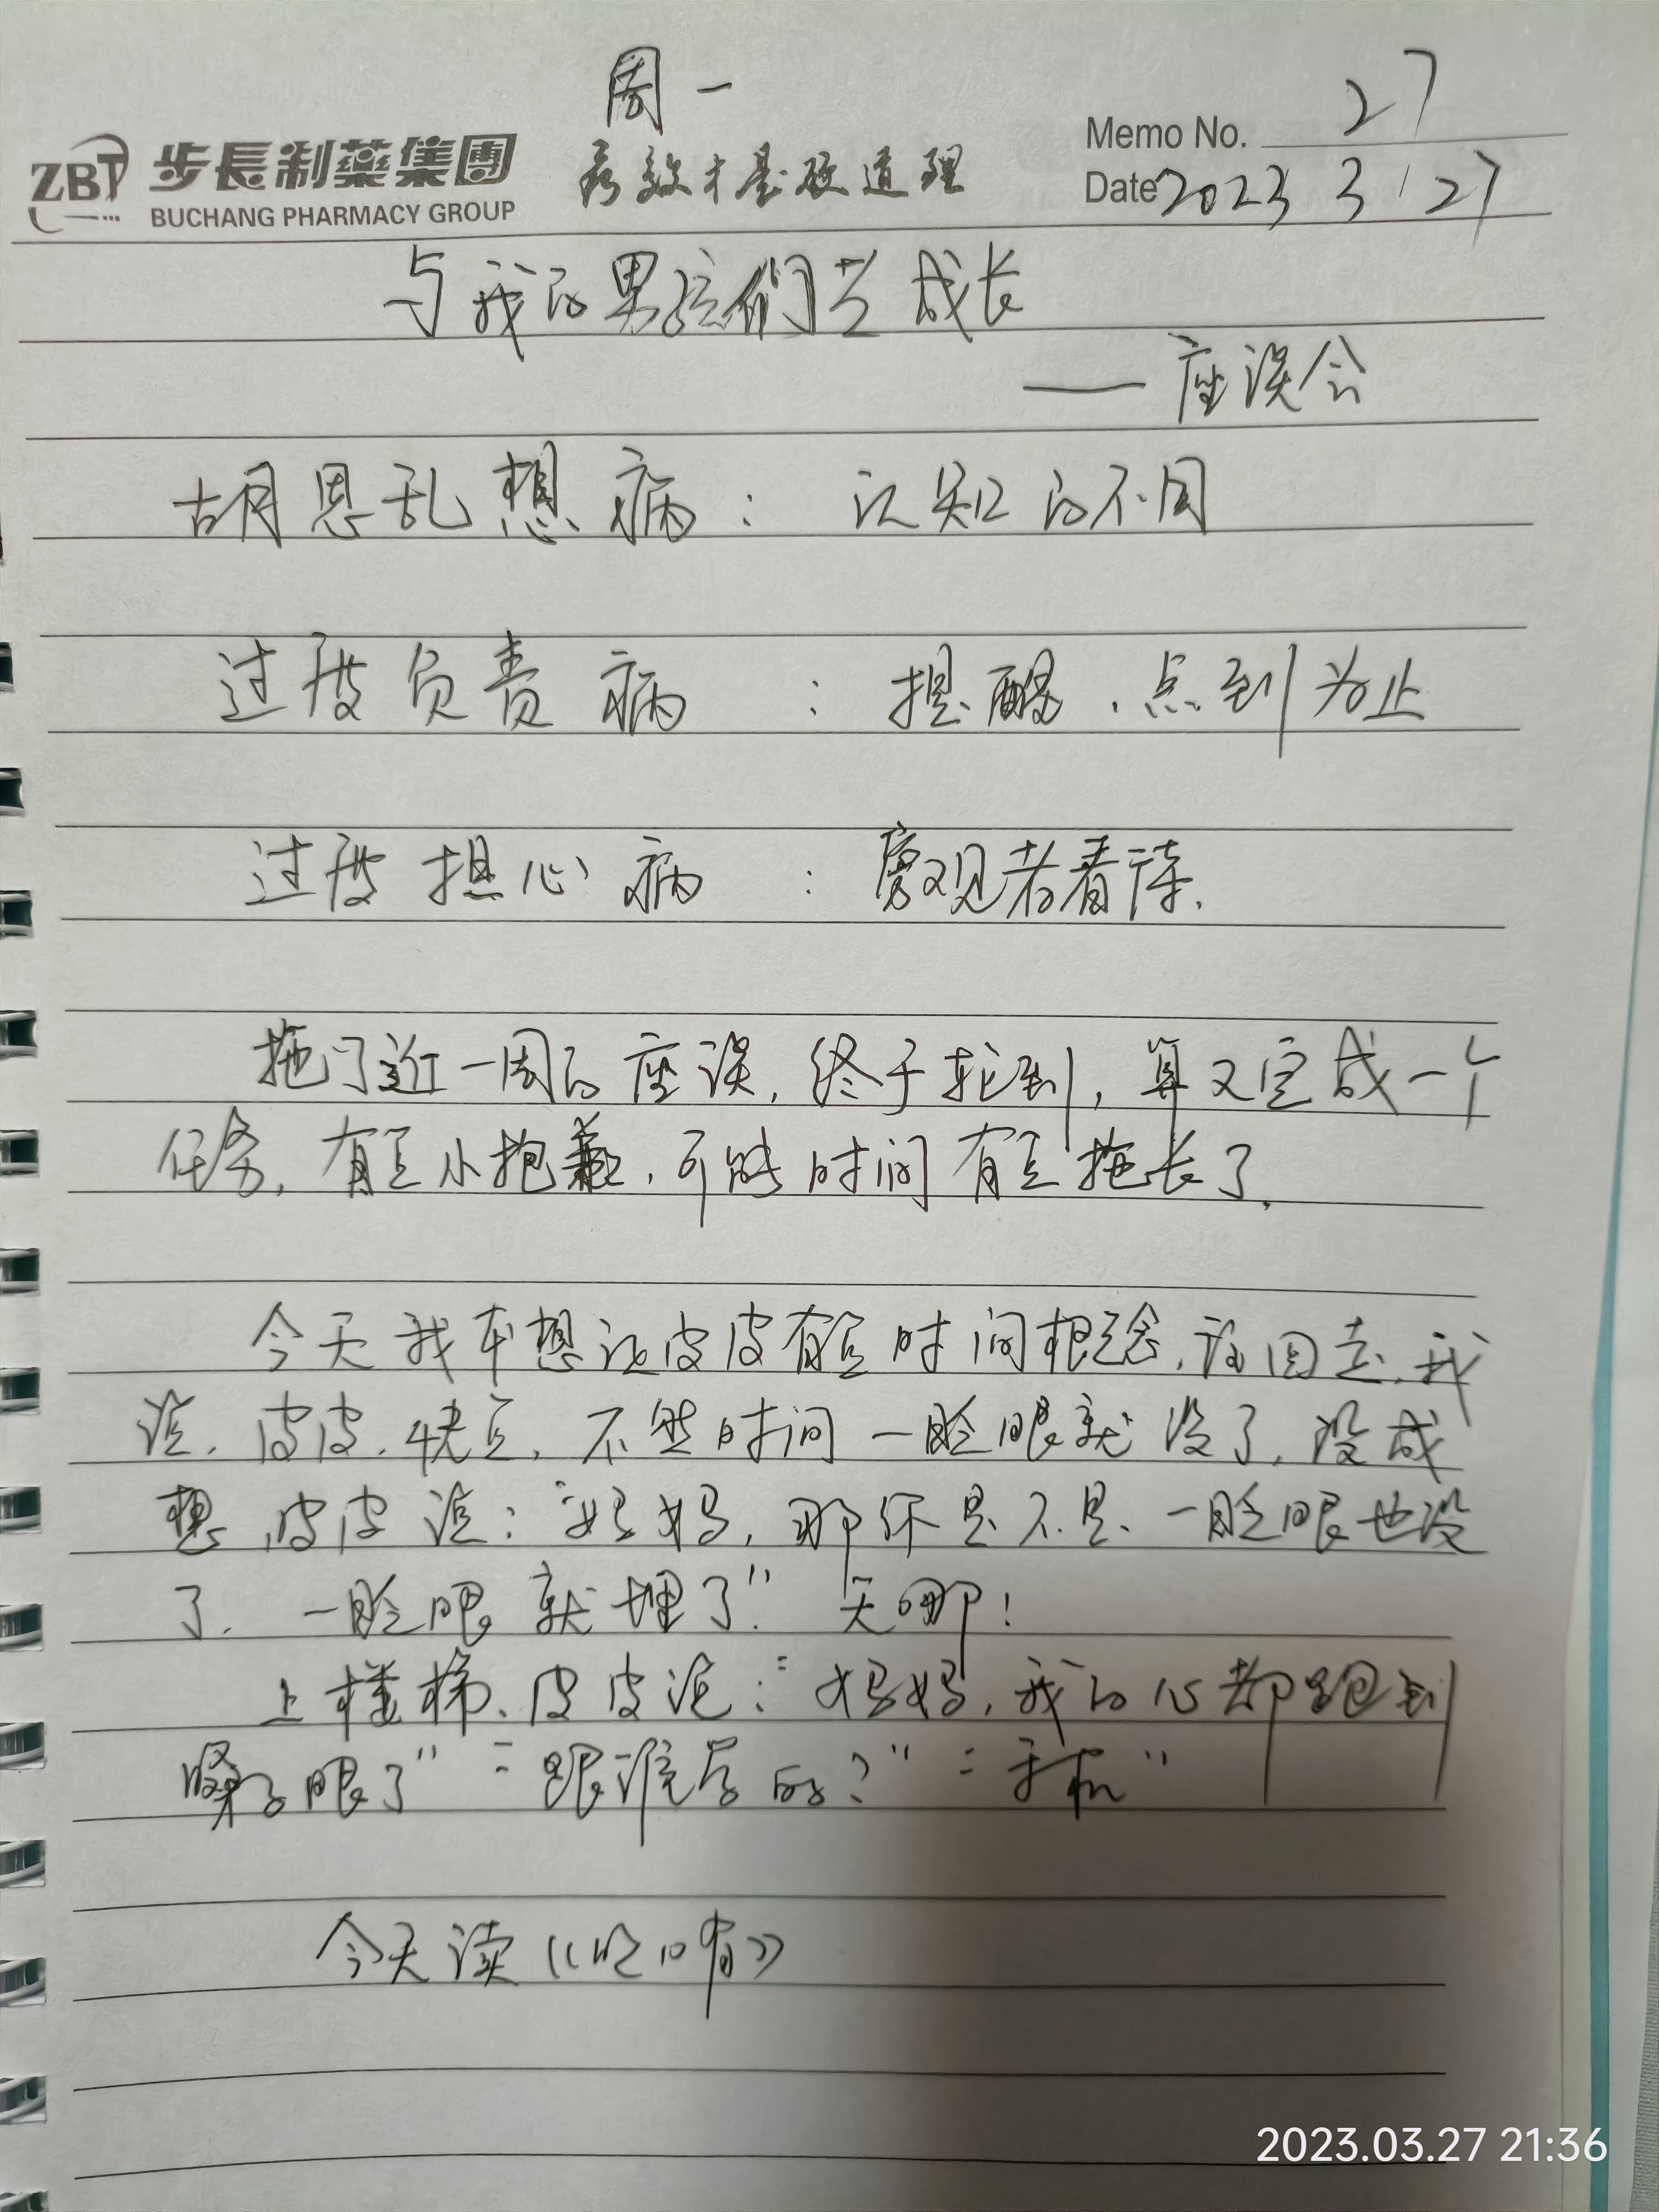 周一
ZBT 步長制藥集團 有效才是硬道理 Memo No. 27
BUCHANG PHARMACY GROUP Date 2023 3 27
与我的男孩们共成长
——座谈会
胡思乱想病：认知的不同
过度负责病：提醒、点到为止
过度担心病：旁观者看待.
拖了近一周的座谈，终于轮到，算又完成一个
任务，有点小抱歉，可能时间有点拖长了.
今天我本想让皮皮有点时间概念，放回去，我
说，皮皮，快点，不然时间一眨眼就没了，没成
想，皮皮说：“妈妈，那你是不是一眨眼也没
了，一眨眼就埋了” 天哪！
上楼梯、皮皮说：“妈妈，我的心都跑到
嗓子眼了” “跟谁学的？” “手机”
今天读《吃口啃》
2023.03.27 21:36